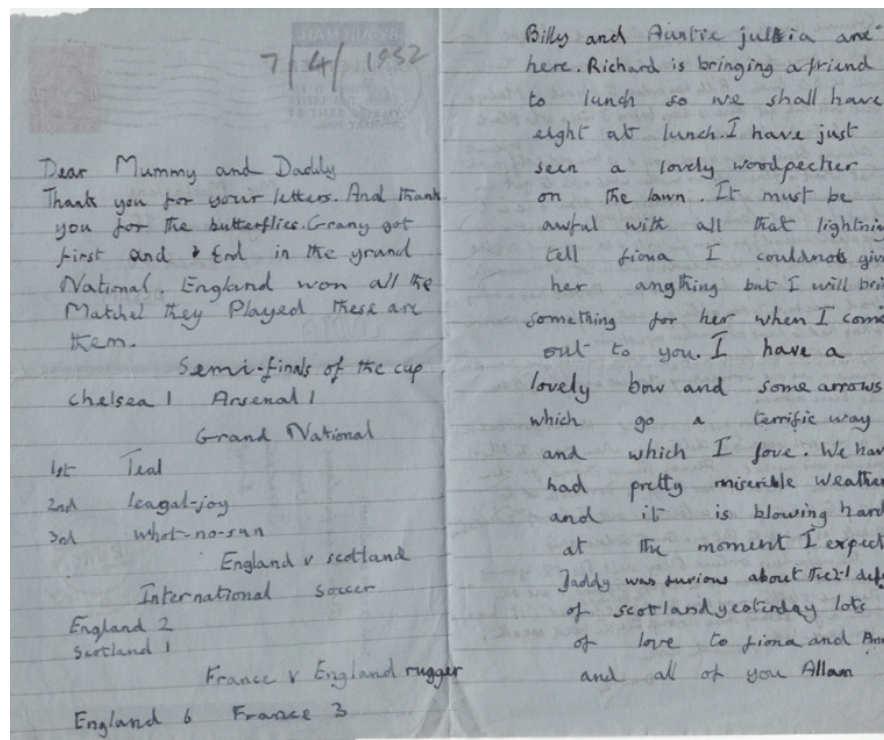 7/4/1952
Dear Mummy and Daddy
Thank you for your letters. And thank
you for the butterflies. Grany got
first and 2End in the grand
National. England won all the
Matchel they Played these are
them.
Semi-finals of the cup
Chelsea 1 Arsenal 1
Grand National
1st Teal
2nd leagal-joy
3rd whot-no-sun
England v scotland
International soccer
England 2
Scotland 1
France v England rugger
England 6 France 3
Billy and Auntie julia are
here. Richard is bringing a friend
to lunch so we shall have
eight at lunch. I have just
seen a lovely woodpecher
on the lawn. It must be
awful with all that lightning
tell fiona I couldnot giv
her angthing but I will bri
something for her when I come
out to you. I have a
lovely bow and some arrows
which go a terrific way
and which I love. We hav
had pretty miserble weather
and it is blowing hard
at the moment I expect
Daddy was furious about the 2-1 def
of scotland yesterday lots
of love to fiona and Ann
and all of you Allan